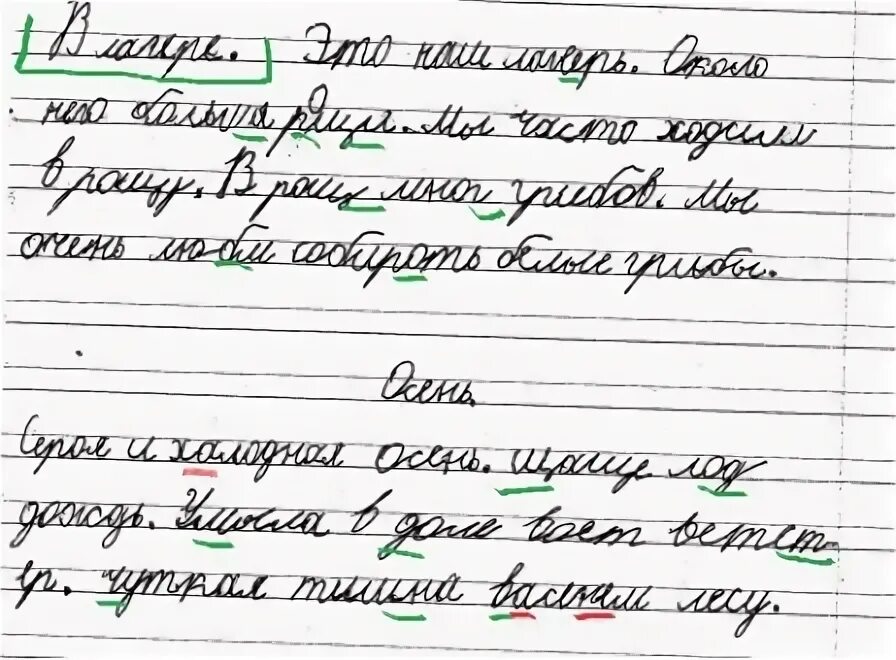 В лагере. Это наш лагерь. Около
него больша роща. Мы часто ходили
в рощу. В рощ мног грибов. Мы
очень люби собироть белые грибы.
Осень.
Серая и халодная осень. Щаще лод
дождь. Умысла в доле воет ветст
ер. чуткая тишина васнам лесу.